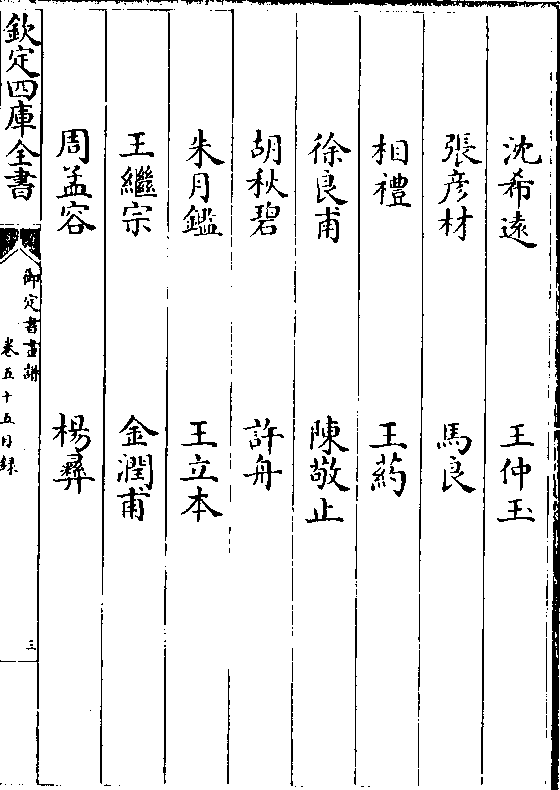 沈希遠　王仲玉
張彦材　馬良
相禮　王葯
徐良甫　陳敬止
胡秋碧　許舟
朱月鑑　王立本
王繼宗　金潤甫
周孟容　楊彞
欽定四庫全書
御定書畫譜
卷五十五目録
三